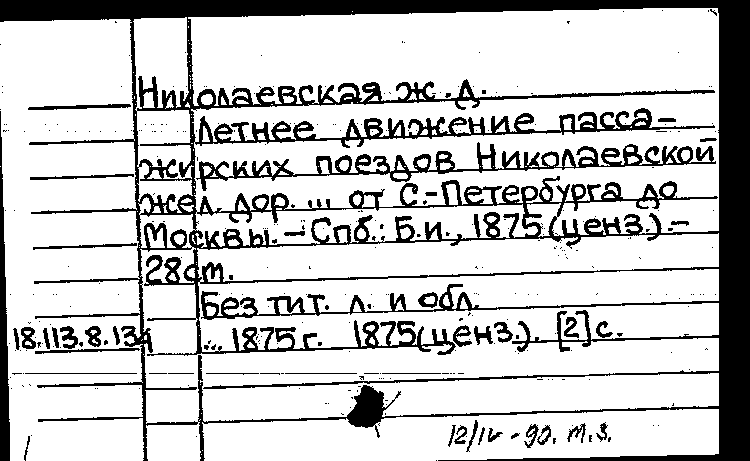 Николаевская ж.д.
Летнее движение пасса-
жирских поездов Николаевской
жел. дор. ... от С.-Петербурга до
Москвы.-Спб.: Б.и., 1875(ценз.).-
28cm.
Без тит. л. и обл.
18.113.8.134 ... 1875г. 1875(ценз.). [2]с.
12/IV-90. т.з.